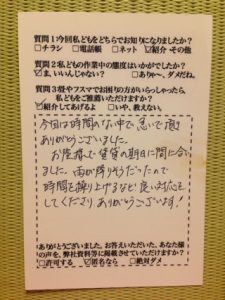 質問1今回私どもをどちらでお知りになりましたか?
□チラシ □電話帳 □ネット ☑紹介 その他
質問2私どもの作業中の態度はいかがでしたか?
☑ま、いいんじゃない? □ありゃ〜、ダメだね。
質問3畳やフスマでお困りの方がいらっしゃったら、
私どもをご推薦いただけますか?
☑紹介してあげるよ □いや、教えない。
今回は時間のない中で、急いで頂き
ありがとうございました。
お陰様で賃貸の期日に間に合い
ました。雨が降りそうだったので
時間を繰り上げるなど良い対応を
してくださり ありがとうございます!
ありがとうございました。お答えいただいた、あなた様
の声を、弊社資料等に掲載させていただけますか?
□許可する ☑匿名なら □絶対ダメ